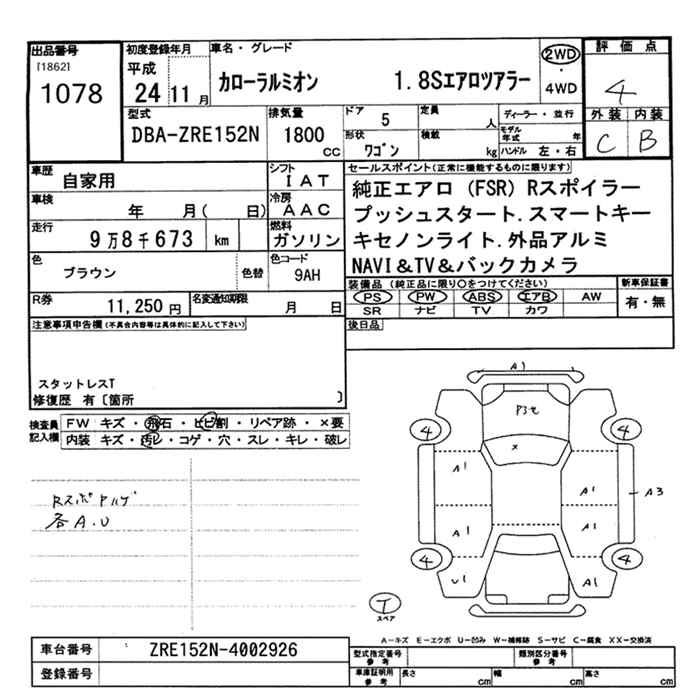 出品番号
[1862]
1078
初度登録年月
平成
24 11 月
車名・グレード
カローラルミオン 1.8Sエアロツアラー
2WD
・
4WD
評価点
4
外装 内装
C B
型式
DBA-ZRE152N
排気量
1800 CC
ドア 5
形状
ワゴン
定員 人
積載 kg
ディーラー・並行
モデル年式 年
ハンドル 左・右
車歴
自家用
シフト
IAT
車検
年 月( 日)
冷房
AAC
走行
9万8千673 km
燃料
ガソリン
色
ブラウン
色替
色コード
9AH
R券 11,250 円
名変通知期限 月 日
セールスポイント(正常に機能するものに限ります)
純正エアロ(FSR)Rスポイラー
プッシュスタート.スマートキー
キセノンライト.外品アルミ
NAVI&TV&バックカメラ
装備品(純正品に限り○をつけてください)
PS PW ABS エアB AW
SR ナビ TV カワ
新車保証書
有・無
後日品
注意事項申告欄(不具合内容等は具体的に記入して下さい)
スタットレスT
修復歴 有〔箇所 〕
検査員
記入欄
FW キズ・飛石・ヒビ割・リペア跡・×要
内装 キズ・汚レ・コゲ・穴・スレ・キレ・破レ
Rスポ
各A.U
A1
P3
×
4 4
A1 A1
A3
A1 A1
4 4
U1 A1
T
スペア
A-キズ E-エクボ U-凹み W-補修跡 S-サビ C-腐食 XX-交換済
車台番号 ZRE152N-4002926
登録番号
型式指定番号
参考
類別区分番号
参考
車庫証明用
参考
長さ cm 幅 cm 高さ cm